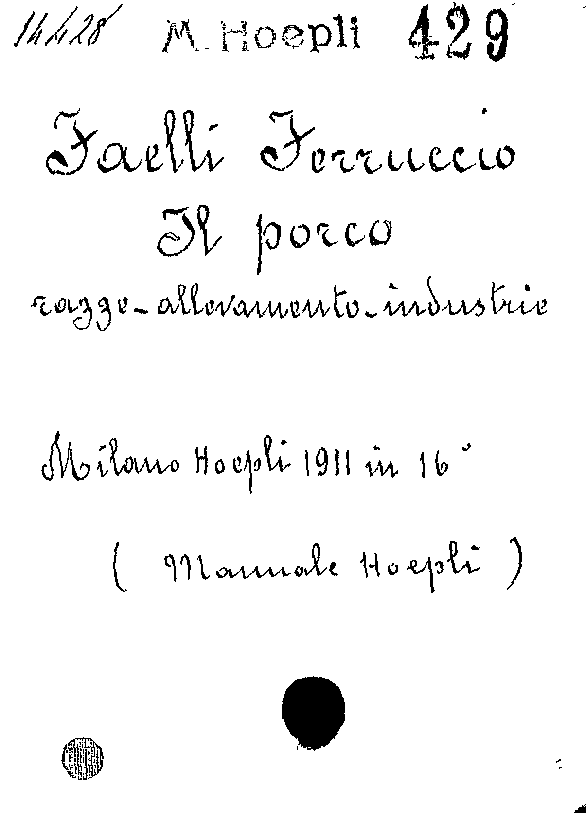 14428 M. Hoepli 429
Faelli Ferruccio
Il porco
razze - allevamento - industrie
Milano Hoepli 1911 in 16°
( Manuale Hoepli )